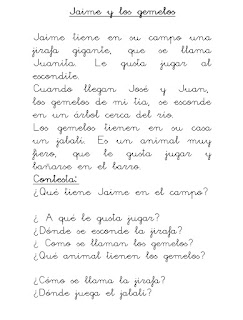 Jaime y los gemelos
Jaime tiene en su campo una
jirafa gigante, que se llama
Juanita. Le gusta jugar al
escondite.
Cuando llegan José y Juan,
los gemelos de mi tía, se esconde
en un árbol cerca del río.
Los gemelos tienen en su casa
un jabalí. Es un animal muy
fiero, que le gusta jugar y
bañarse en el barro.
Contesta:
¿Qué tiene Jaime en el campo?
¿ A qué le gusta jugar?
¿Dónde se esconde la jirafa?
¿ Como se llaman los gemelos?
¿Qué animal tienen los gemelos?
¿Cómo se llama la jirafa?
¿Dónde juega el jabalí?